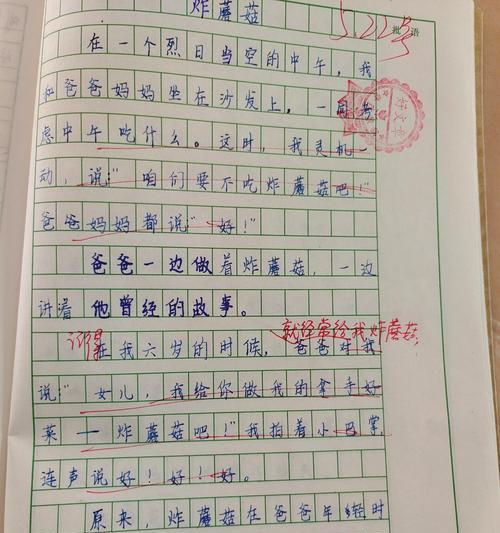 炸蘑菇
5.22号
批语
在一个烈日当空的中午，我
和爸爸妈妈坐在沙发上，一同考
好文章
虑中午吃什么。这时，我灵机一
动，说："咱们要不吃炸蘑菇吧！"
爸爸妈妈都说"好！"
爸爸一边做着炸蘑菇，一边
讲着他曾经的故事。
就经常给我炸蘑菇
记得
在我六岁的时候，爸爸对我
说"女儿，我给你做我的拿手好
菜——炸蘑菇吧！"我拍着小巴掌，
连声说好！好！好。
原来，炸蘑菇在爸爸年轻时